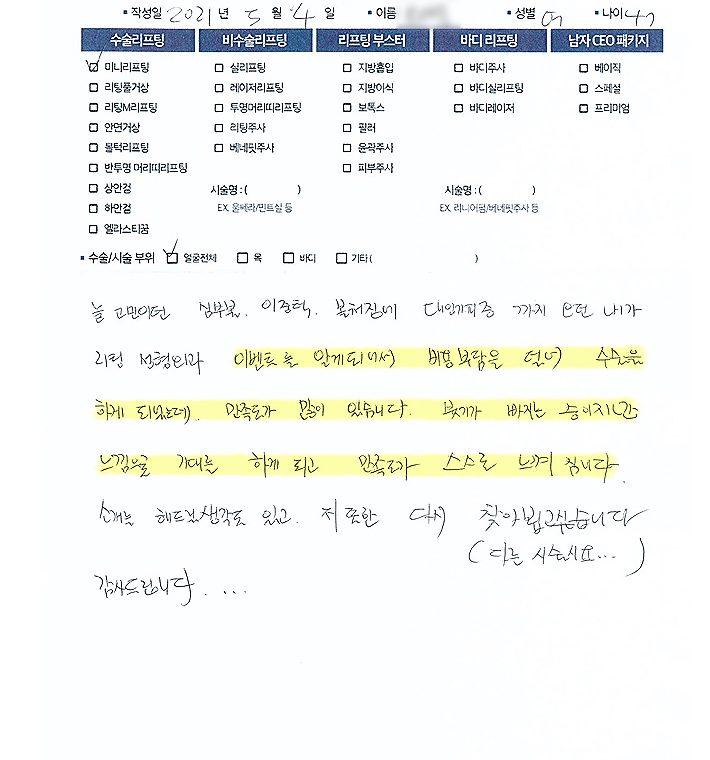 작성일 2021년 5월 4일 이름 성별 여 나이 47
수술리프팅 비수술리프팅 리프팅 부스터 바디 리프팅 남자 CEO 패키지
미니리프팅 실리프팅 지방흡입 바디주사 베이직
리팅풀거상 레이저리프팅 지방이식 바디실리프팅 스페셜
리팅M리프팅 투명머리띠리프팅 보톡스 바디레이저 프리미엄
안면거상 리팅주사 필러
볼턱리프팅 베네핏주사 윤곽주사
반투명 머리띠리프팅 피부주사
상안검 시술명 : ( ) 시술명 : ( )
하안검 EX. 울쎄라/민트실 등 EX. 리니어펌/베네핏주사 등
엘라스티꿈
수술/시술 부위 얼굴전체 목 바디 기타 ( )
늘 고민이던 심부볼. 이중턱. 볼처짐에 대인기피증 까지 오던 내가
리팅 성형외과 이벤트를 알게되어서 비용부담을 덜어 수술을
하게 되었는데. 만족도가 많이 있습니다. 붓기가 빠지는
느낌을 기대를 하게 되고 만족도가 스스로 느껴 집니다.
소개는 해드릴생각도 있고. 저 또한 다시 찾아뵙고싶습니다
(다른 시술시요...)
감사드립니다. ...